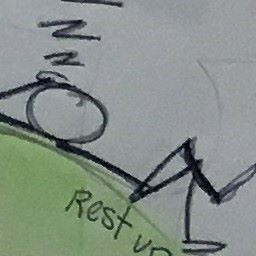 Z
Z
Z
Rest up